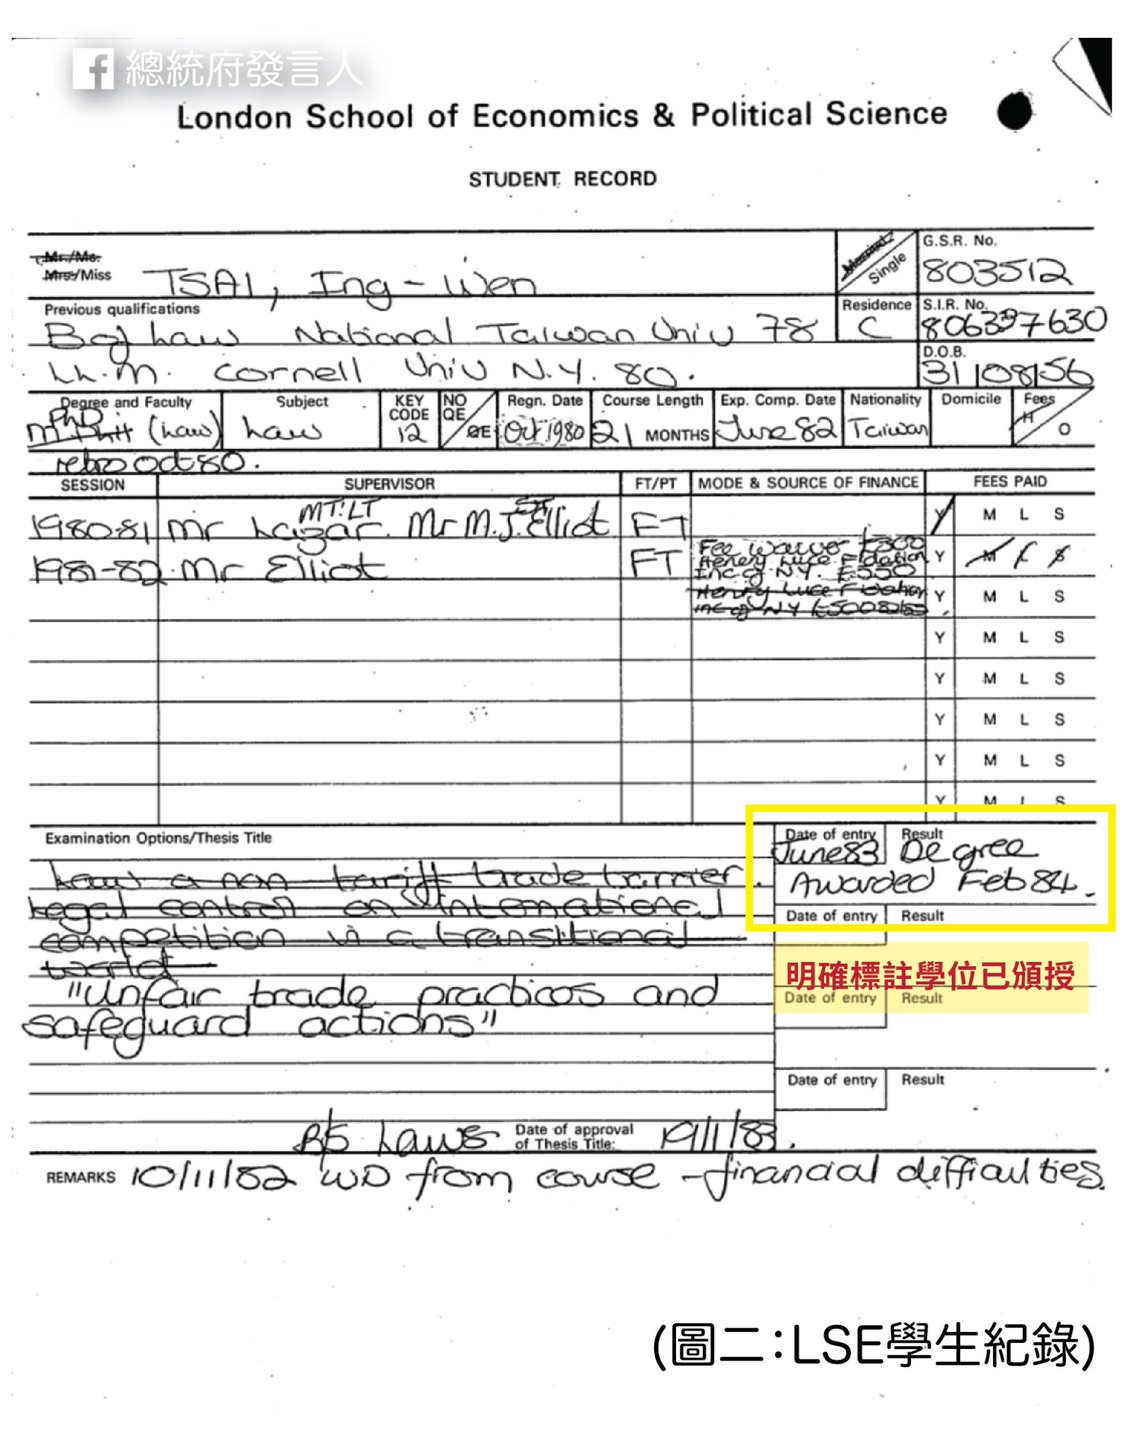 總統府發言人
London School of Economics & Political Science
STUDENT RECORD
Mr./Ms.
Mrs./Miss TSAI, Ing-Wen
Married/Single
G.S.R. No.
803512
Previous qualifications
B of Law National Taiwan Univ 78
LL.M. Cornell Univ N.Y. 80.
Residence
C
S.I.R. No.
806337630
D.O.B.
31/08/56
Degree and Faculty
PhD
MPhil (Law)
Subject
Law
KEY CODE
12
NO QE/QE
Regn. Date
Oct 1980
Course Length
21 MONTHS
Exp. Comp. Date
June 82
Nationality
Taiwan
Domicile
Fees
H/O
retro oct 80.
SESSION SUPERVISOR FT/PT MODE & SOURCE OF FINANCE FEES PAID
MT:LT
1980-81 Mr Lazar. Mr M.J. Elliot FT Y M L S
1981-82 Mr Elliot FT Fee waiver £500 Y M L S
Henry Luce Fdation
Inc of N.Y. £550
Henry Luce Fdation Y M L S
Inc of NY
Y M L S
Y M L S
Y M L S
Y M L S
Y M L S
Examination Options/Thesis Title
Law a non tariff trade barrier.
Legal control on international
competition in a transitional
world
"Unfair trade practices and
safeguard actions"
Date of entry Result
June 83 Degree
Awarded Feb 84.
Date of entry Result
明確標註學位已頒授
Date of entry Result
Date of entry Result
B/S Laws Date of approval of Thesis Title: 19/1/83.
REMARKS 10/11/82 WD from course - financial difficulties.
(圖二:LSE學生紀錄)